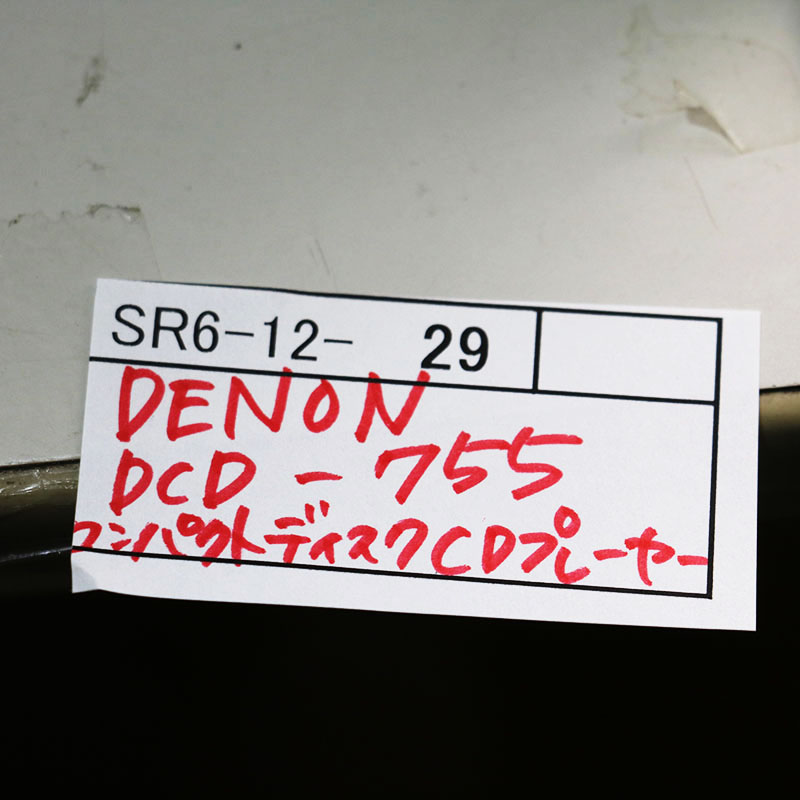 SR6-12- 29
DENON
DCD-755
コンパクトディスクCDプレーヤー